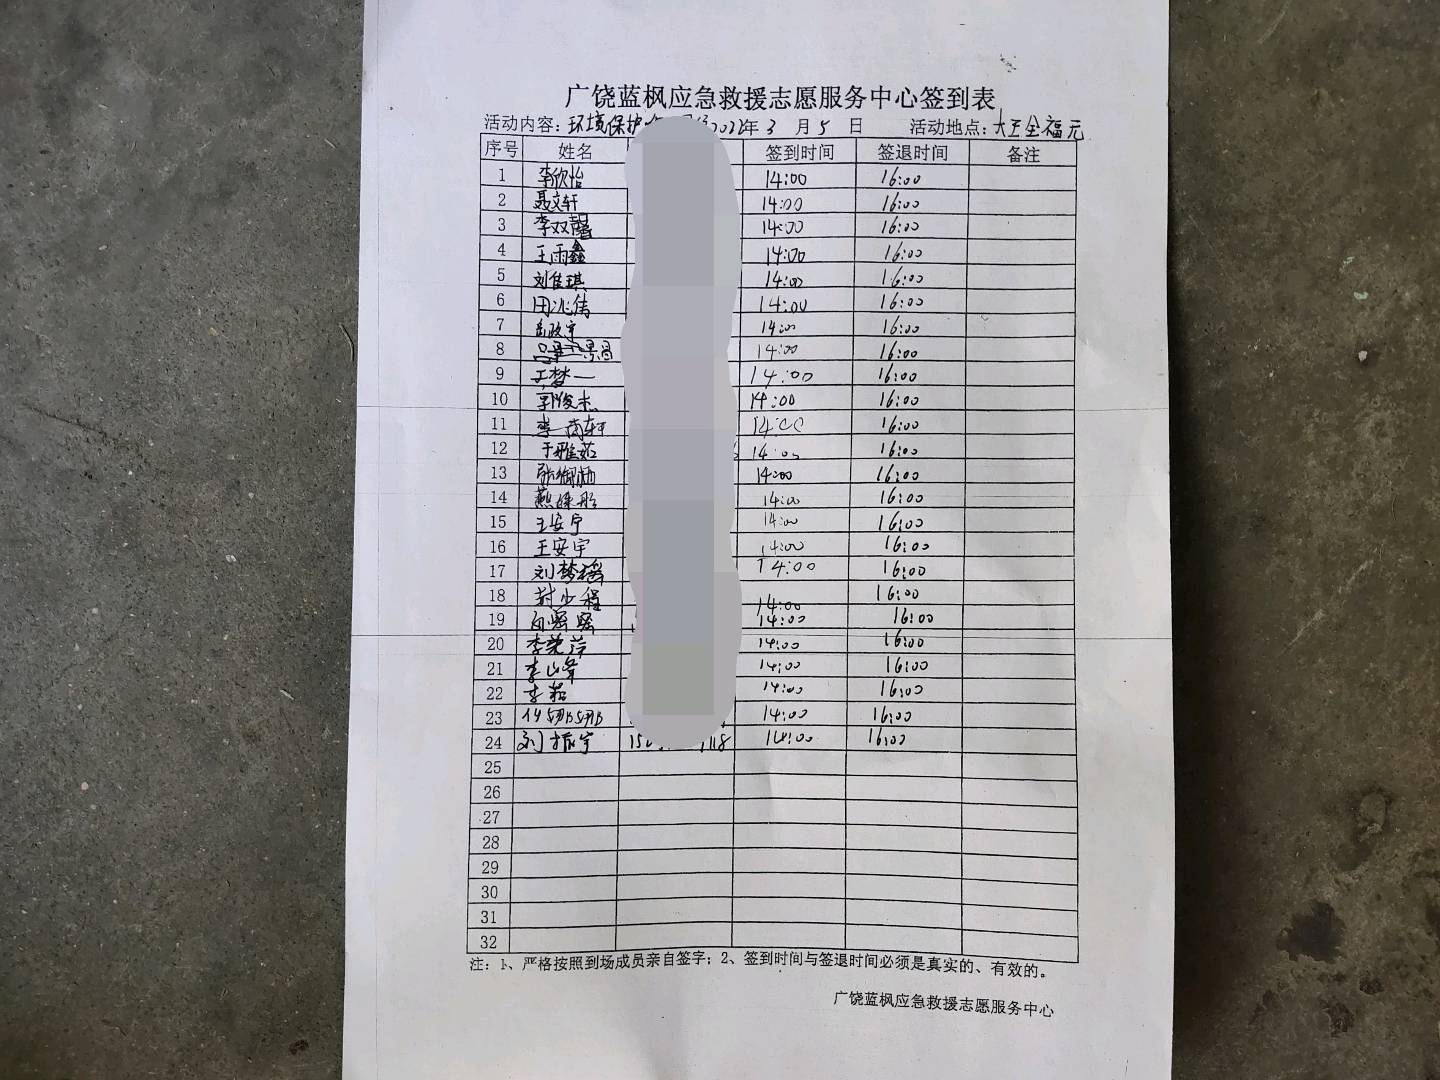 广饶蓝枫应急救援志愿服务中心签到表
活动内容：环境保护 2022年 3 月 5 日 活动地点：大王全福元
序号 姓名 签到时间 签退时间 备注
1 李欣怡 14:00 16:00
2 聂文轩 14:00 16:00
3 李双馨 14:00 16:00
4 王雨鑫 14:00 16:00
5 刘佳琪 14:00 16:00
6 田兆伟 14:00 16:00
7 14:00 16:00
8 14:00 16:00
9 王梦一 14:00 16:00
10 郭俊杰 14:00 16:00
11 李 轩 14:00 16:00
12 于雅茹 14:00 16:00
13 张 14:00 16:00
14 燕 彤 14:00 16:00
15 王安宁 14:00 16:00
16 王安宇 14:00 16:00
17 刘梦瑶 14:00 16:00
18 封少程 14:00 16:00
19 14:00 16:00
20 李 萍 14:00 16:00
21 李山峰 14:00 16:00
22 李 14:00 16:00
23 14:00 16:00
24 刘振宇 118 14:00 16:00
25
26
27
28
29
30
31
32
注：1、严格按照到场成员亲自签字；2、签到时间与签退时间必须是真实的、有效的。
广饶蓝枫应急救援志愿服务中心